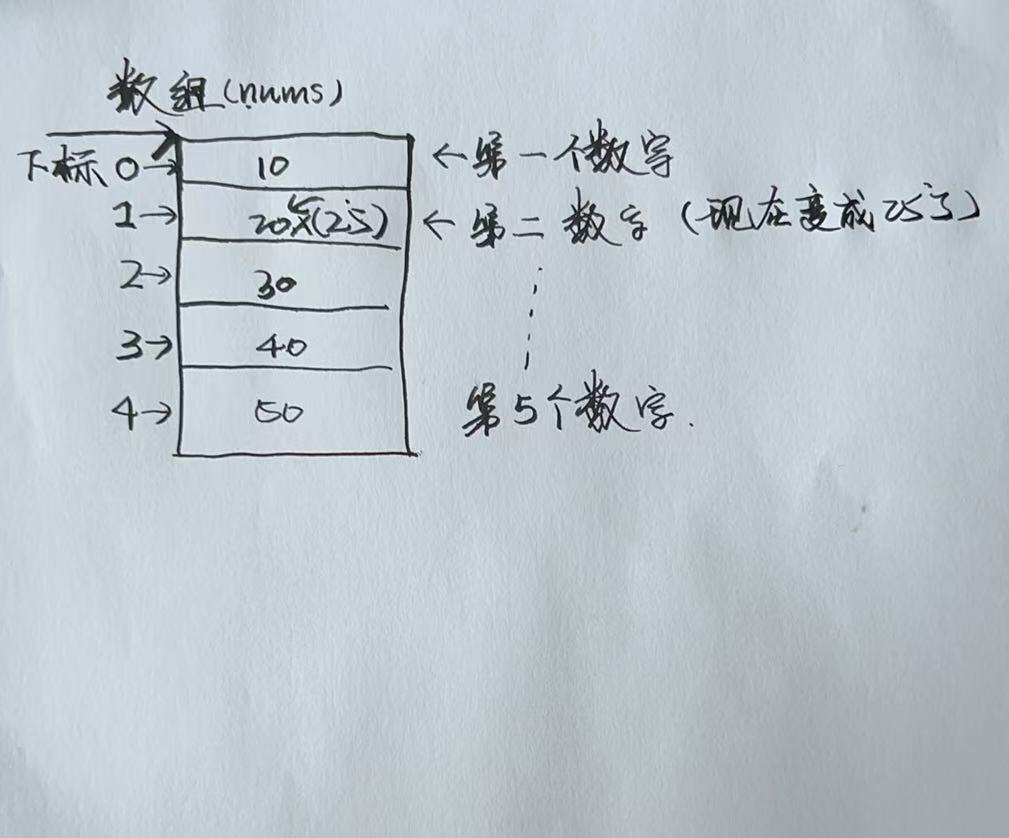 数组(nums)
下标 0→ 10 ←第一个数字
1→ 20 (25) ←第二数字 (现在变成25了)
2→ 30
3→ 40
4→ 50 第5个数字.